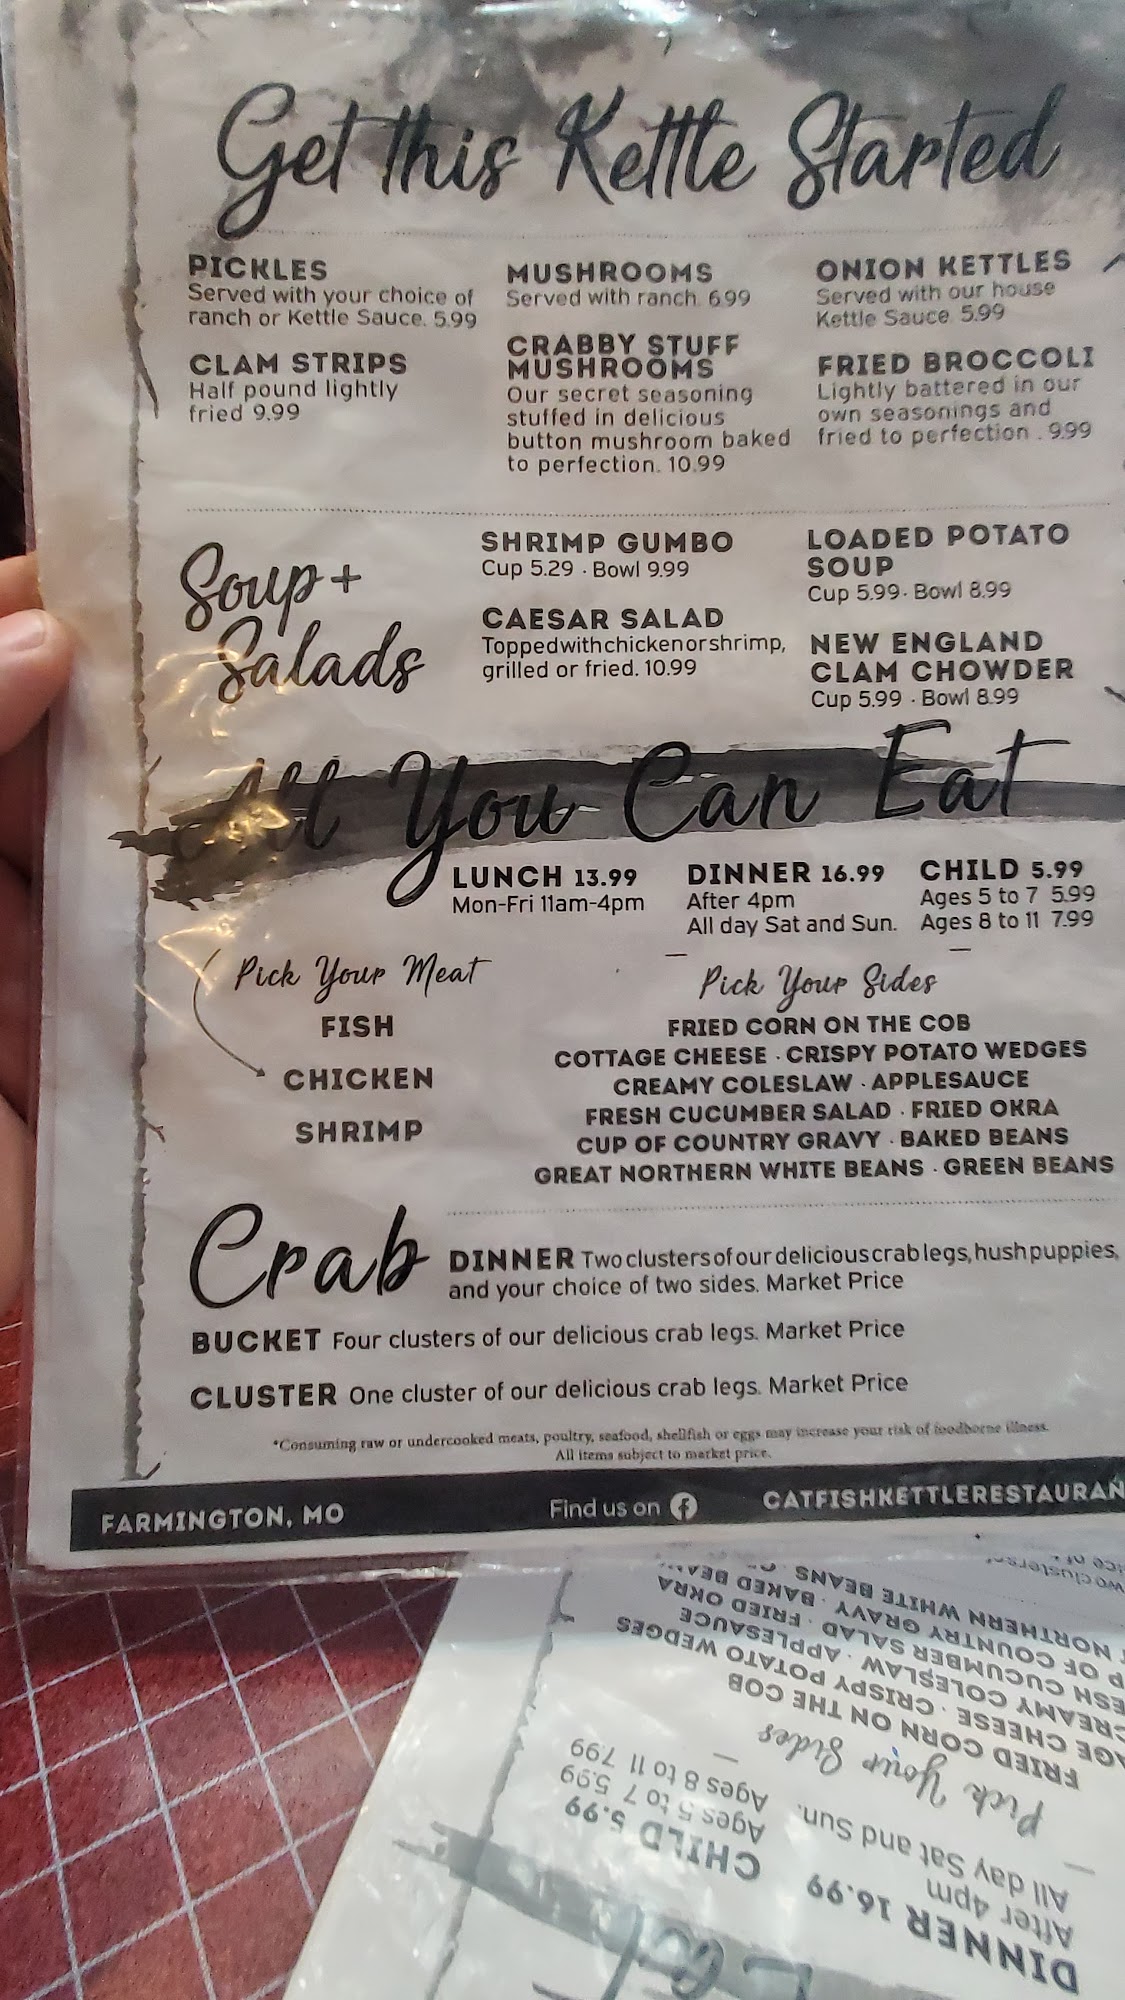 Get this Kettle Started
PICKLES
Served with your choice of
ranch or Kettle Sauce. 5.99
CLAM STRIPS
Half pound lightly
fried 9.99
MUSHROOMS
Served with ranch. 6.99
CRABBY STUFF
MUSHROOMS
Our secret seasoning
stuffed in delicious
button mushroom baked
to perfection. 10.99
ONION KETTLES
Served with our house
Kettle Sauce. 5.99
FRIED BROCCOLI
Lightly battered in our
own seasonings and
fried to perfection . 9.99
Soup +
Salads
SHRIMP GUMBO
Cup 5.29 · Bowl 9.99
CAESAR SALAD
Topped with chicken or shrimp,
grilled or fried. 10.99
LOADED POTATO
SOUP
Cup 5.99 · Bowl 8.99
NEW ENGLAND
CLAM CHOWDER
Cup 5.99 · Bowl 8.99
All You Can Eat
LUNCH 13.99
Mon-Fri 11am-4pm
DINNER 16.99
After 4pm
All day Sat and Sun.
CHILD 5.99
Ages 5 to 7 5.99
Ages 8 to 11 7.99
Pick Your Meat
FISH
CHICKEN
SHRIMP
Pick Your Sides
FRIED CORN ON THE COB
COTTAGE CHEESE · CRISPY POTATO WEDGES
CREAMY COLESLAW · APPLESAUCE
FRESH CUCUMBER SALAD · FRIED OKRA
CUP OF COUNTRY GRAVY · BAKED BEANS
GREAT NORTHERN WHITE BEANS · GREEN BEANS
Crab
DINNER Two clusters of our delicious crab legs, hush puppies,
and your choice of two sides. Market Price
BUCKET Four clusters of our delicious crab legs. Market Price
CLUSTER One cluster of our delicious crab legs. Market Price
*Consuming raw or undercooked meats, poultry, seafood, shellfish or eggs may increase your risk of foodborne illness.
All items subject to market price.
FARMINGTON, MO
Find us on
CATFISHKETTLERESTAURAN
DINNER 16.99
After 4pm
All day Sat and Sun.
CHILD 5.99
Ages 5 to 7 5.99
Ages 8 to 11 7.99
Pick Your Sides
FRIED CORN ON THE COB
AGE CHEESE · CRISPY POTATO WEDGES
CREAMY COLESLAW · APPLESAUCE
ESH CUCUMBER SALAD · FRIED OKRA
P OF COUNTRY GRAVY · BAKED BEAN
NORTHERN WHITE BEANS